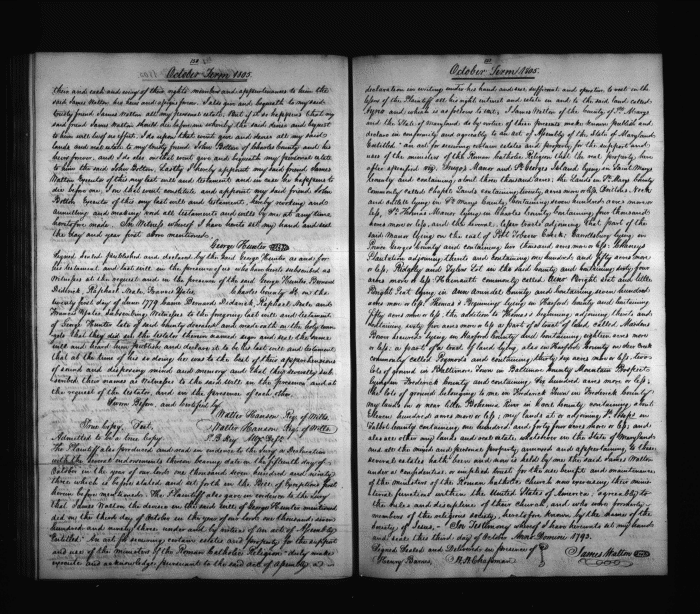 October Term 1805.
their and each and every of their rights members and appurtenances to him the
said James Walton his heirs and assigns forever. I also give and bequeath to my said
trusty friend James Walton all my personal estate. But if it so happens that my
said friend James Walton should die before me
to him will have no effort. I do upon that event give and devise all my said
lands and real estate to my trusty friend John Bolton of Charles County and his
heirs forever, and I do also on that event give and bequeath my personal estate
to him the said John Bolton. Lastly I hereby appoint my said friend James
Walton Executor of this my last will and testament and in case he happens to
die before me, I on that event constitute and appoint my said friend John
Bolton Executor of this my last will and testament, hereby revoking and
annulling and making void all testaments and wills by me at any time
heretofore made. In Witness whereof I have hereto set my hand and seal
the day and year first above mentioned.
George Hunter
Signed Sealed published and declared by the said George Hunter as and for
his testament and last will in the presence of us who have hereto subscribed as
Witnesses at the request and in the presence of the said George Hunter. Bernard
Diderick, Raphael Neale, Francis Neale. Charles County Ss. on the
twenty first day of June 1779 Came Bernard Diderick, Raphael Neale and
Francis Neale, Subscribing Witnesses to the foregoing last will and testament
of George Hunter late of said County deceased and made oath on the holy evan
gels that they did see the testator therein named sign and seal the same
will and heard him publish and declare it to be his last will and testament
that at the time of his so doing he was to the best of their apprehension
of sound and disposing mind and memory and that they severally sub
scribed their names as witnesses to the said will in the presence and at
the request of the testator, and in the presence of each other.
Sworn Before, and Certified by
Walter Hanson Reg. of Wills
True Copy, Test. Walter Hanson Reg. of Wills
Admitted to be a true copy P. B. Key
The Plaintiff also produced and read in evidence to the Jury a Declaration
with the several endorsements thereon bearing date on the fifteenth day of
October in the year of our lord one thousand seven hundred and ninety
three which is before stated and set forth in the Bill of Exceptions first
herein before mentioned. The Plaintiff also gave in evidence to the Jury
that James Walton the devisee in the said will of George Hunter mention
ed did on the third day of October in the year of our lord one thousand seven
hundred and ninety three under and by virtue of an act of Assembly
Entitled "An act for securing certain estates and property for the support
and use of the ministers of the Roman Catholic Religion" duly make
execute and acknowledge pursuant to the said act of Assembly, a
October Term 1805.
declaration in writing under his hand and seal sufficient and
operative to vest in the
lessor of the Plaintiff all his right interest and estate in and to the said land called
and which is as follows to wit: I James Walton of the County of St. Marys
and the State of Maryland do by virtue of these presents make known publish and
declare in conformity and agreeably to an act of Assembly of the State of Maryland
Entitled "an act for securing certain estates and property for the support and
uses of the ministers of the Roman Catholic Religion that the real property here
after specified viz Inigos Manor and St. Georges Island lying in Saint Marys
County and containing about three thousand acres; the Lands in St. Marys County
commonly called Chapel Lands containing twenty acres more or less;
and estate lying in St Marys County Containing seven hundred acres more or
less; St. Thomas Manor lying in Charles County containing four thousand
acres more or less, and the several
said Manor lying on the east of Port Tobacco Creek;
Prince Georges County and containing two thousand acres more or less;
Plantation adjoining thereto and containing one hundred and fifty acres more
or less,
acres more or less. Whitemarsh commonly called
lying in Anne Arundel County and containing seven hundred
acres more or less; Thomas's Beginning lying in Harford County and containing
fifty acres more or less; the addition to Thomas's beginning adjoining thereto and
containing sixty five acres more or less
lying in Harford County and containing eighteen acres more
or less; a part of a tract of land lying also in Harford County on deer Creek
commonly called Paynors and containing thirty six acres more or less; two
lots of ground in Baltimore Town in Baltimore County Mountain Prospect
lying in Frederick County and containing six hundred acres more or less;
the lots of ground belonging to me in Frederick Town in Frederick County;
my lands on or near little Bohemia River in Cecil County containing about
Eleven hundred acres more or less; my lands at or adjoining St. Josephs in
Talbot County containing one hundred and forty four acres more or less; and
also all other my lands and real estate whatsoever in the State of Maryland
and all the mixed and personal property annexed and appertaining to these
several estates hath been and now is held by me the said James Walton
under a confidential or implied trust for the use benefit and maintenance
of the ministers of the Roman Catholic Church now exercising their minis
terial functions within the United States of America, agreeably to
the rules and discipline of their Church, and who were formerly
members of the religious society, heretofore known by the name of the
Society of Jesus. In Testimony whereof I have hereunto set my hand
and seal this third day of October Anno Domini 1793.
Signed Sealed and Delivered in presence of
James Walton
Henry Barnes, H. H. Chapman